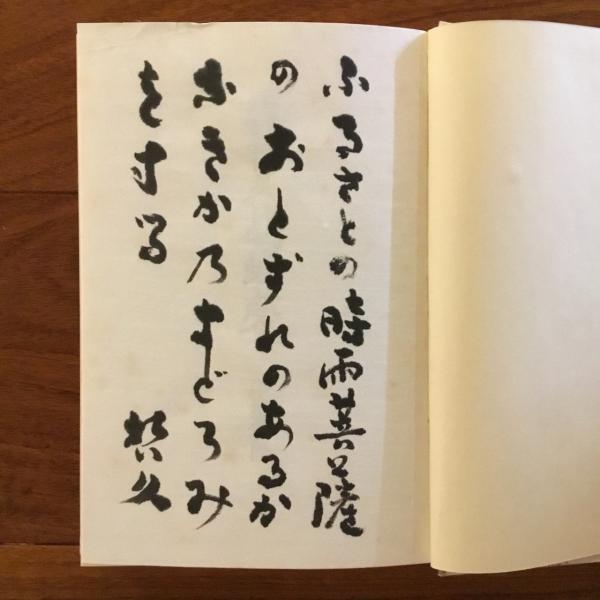 ふるさとの時雨菩薩
のおとずれのあるか
なきか乃まどろみ
をする
哲久